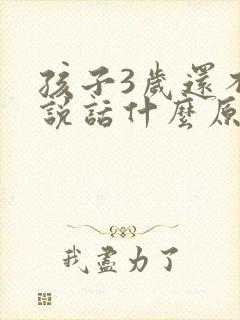 孩子3歲還不
說話什麼原
我盡力了